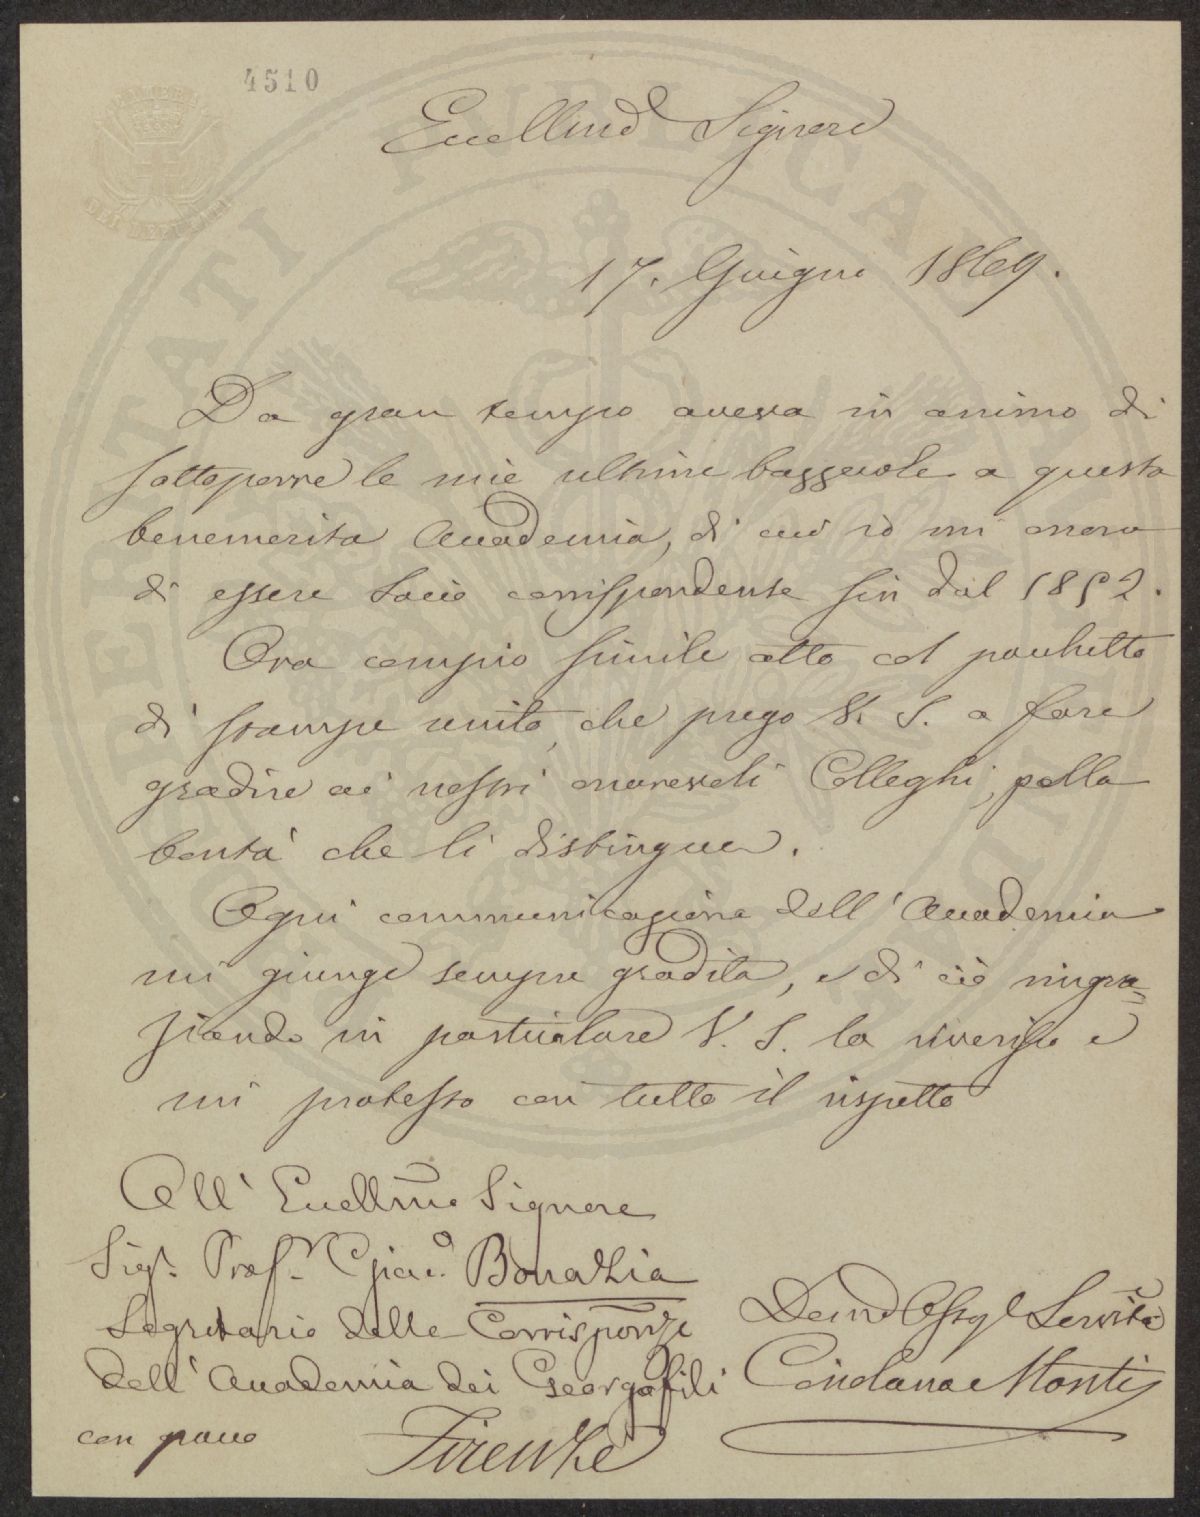 4510
CAMERA
DEI DEPUTATI
Eccellmo Signore
17. Giugno 1869.
Da gran tempo aveva in animo di
sottoporre le mie ultime bazzecole a questa
benemerita Accademia, di cui io mi onoro
di essere Socio corrispondente sin dal 1852.
Ora compio simile atto col pacchetto
di stampe unito, che prego V. S. a fare
gradire ai nostri onorevoli Colleghi, polla
bontà che li distingue.
Ogni communicazione dell'Accademia
mi giunge sempre gradita, e di ciò ringra=
ziando in particolare V. S. la riverisco e
mi protesto con tutto il rispetto
All' Eccellmo Signore
Sigr. Profr. Giaco. Bonazzia
Segretario delle Corrisponze
dell' Accademia dei Georgofili
con piano
Firenze
Devmo Obbgo Servite
Monti